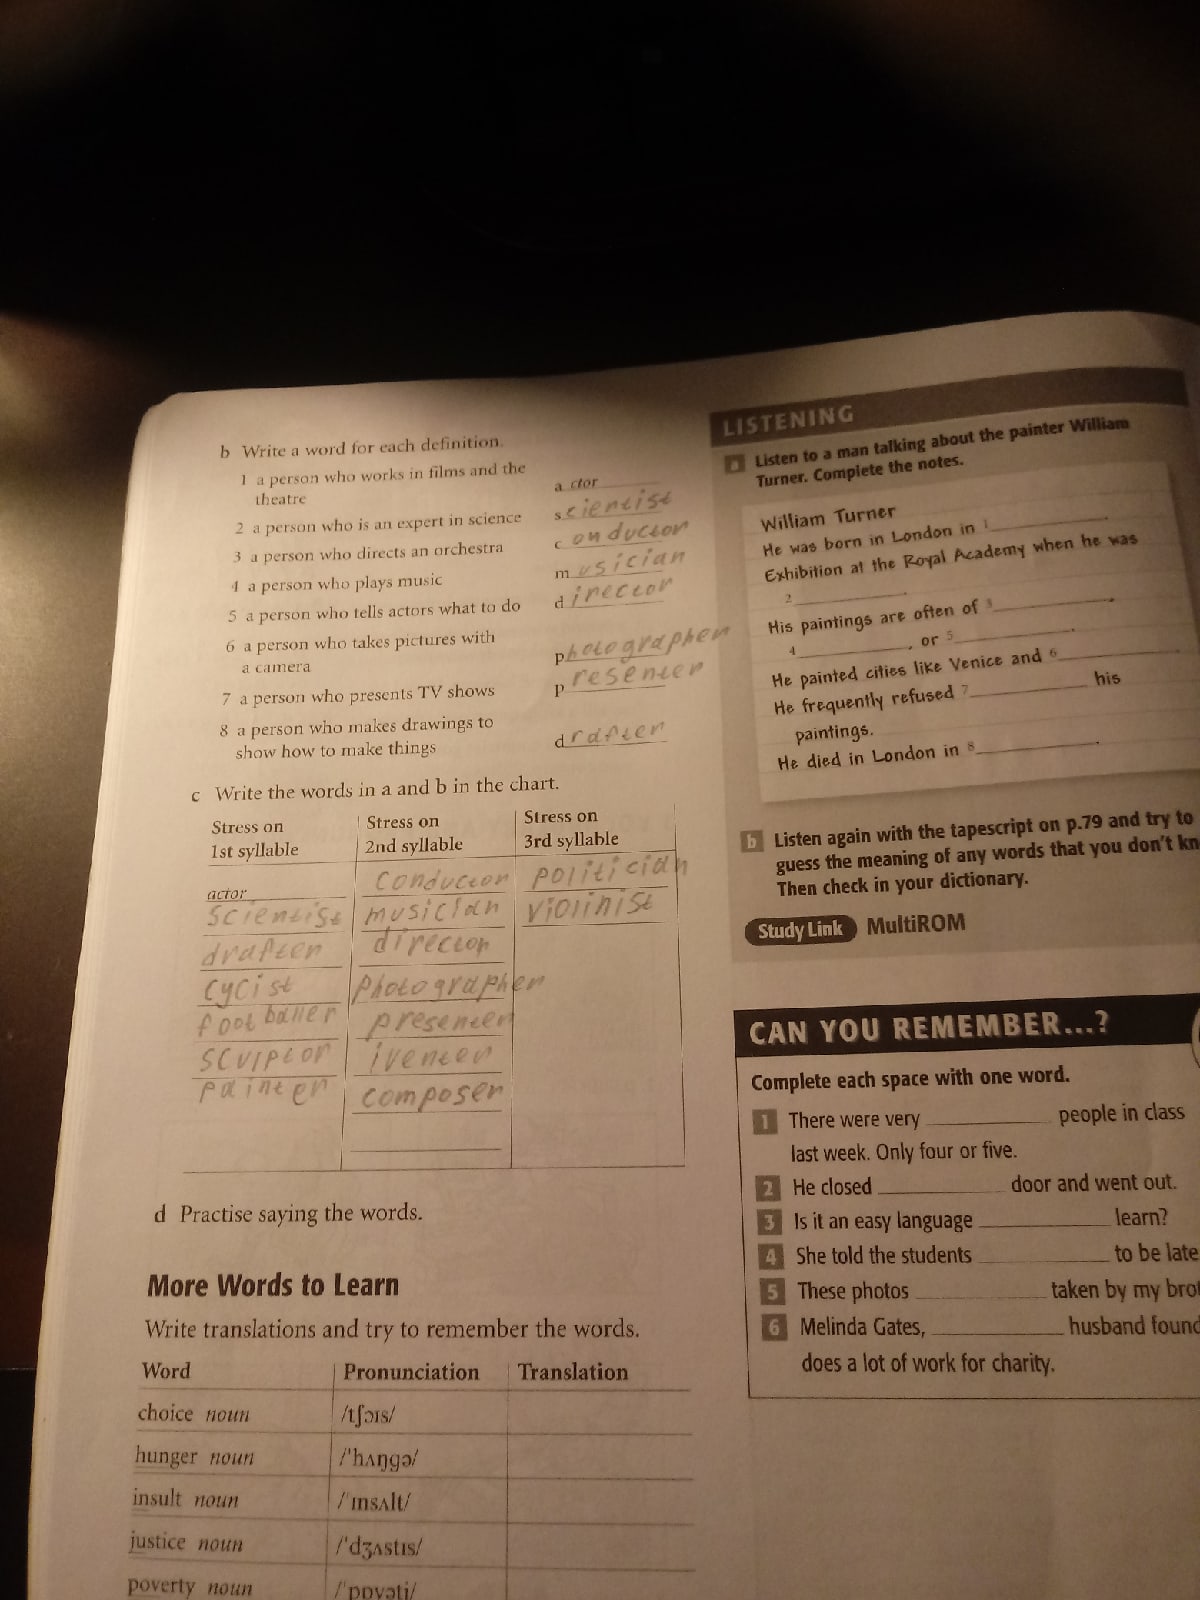 b Write a word for each definition.
1 a person who works in films and the
theatre
a ctor
2 a person who is an expert in science
scientist
3 a person who directs an orchestra
c onductor
4 a person who plays music
musician
5 a person who tells actors what to do
director
6 a person who takes pictures with
a camera
photographer
7 a person who presents TV shows
presenter
8 a person who makes drawings to
show how to make things
drafter
c Write the words in a and b in the chart.
Stress on
1st syllable
Stress on
2nd syllable
Stress on
3rd syllable
actor
conductor
politician
scientist
musician
violinist
drafter
director
cycist
photographer
footballer
presenter
sculptor
iventer
painter
composer
d Practise saying the words.
More Words to Learn
Write translations and try to remember the words.
Word Pronunciation Translation
choice noun /tʃɔɪs/
hunger noun /ˈhʌŋgə/
insult noun /ˈɪnsʌlt/
justice noun /ˈdʒʌstɪs/
poverty noun /ˈpɒvəti/
LISTENING
a Listen to a man talking about the painter William
Turner. Complete the notes.
William Turner
He was born in London in 1
Exhibition at the Royal Academy when he was
2
His paintings are often of 3
4 , or 5 .
He painted cities like Venice and 6
He frequently refused 7 his
paintings.
He died in London in 8 .
b Listen again with the tapescript on p.79 and try to
guess the meaning of any words that you don't kn
Then check in your dictionary.
Study Link MultiROM
CAN YOU REMEMBER...?
Complete each space with one word.
1 There were very people in class
last week. Only four or five.
2 He closed door and went out.
3 Is it an easy language learn?
4 She told the students to be late
5 These photos taken by my bro
6 Melinda Gates, husband found
does a lot of work for charity.